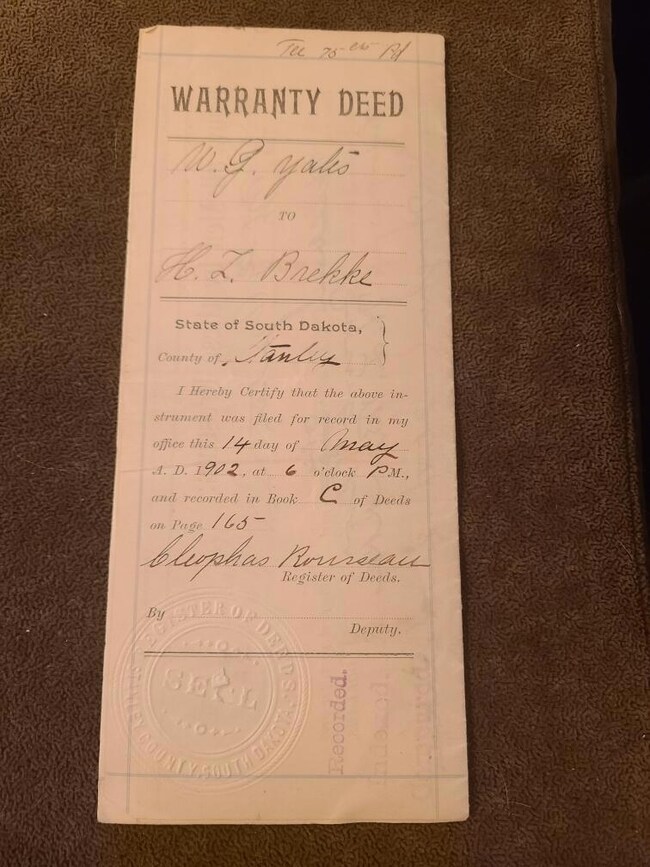 Fee 75 cts Pd
WARRANTY DEED
W. G. Yates
TO
H. L. Brekke
State of South Dakota,
County of Stanley
I Hereby Certify that the above in-
strument was filed for record in my
office this 14 day of May
A. D. 1902, at 6 o'clock P M.,
and recorded in Book C of Deeds
on Page 165
Cleophas Rousseau
Register of Deeds.
By
Deputy.
REGISTER OF DEEDS
SEAL
STANLEY COUNTY, SOUTH DAKOTA
Recorded.
Indexed.